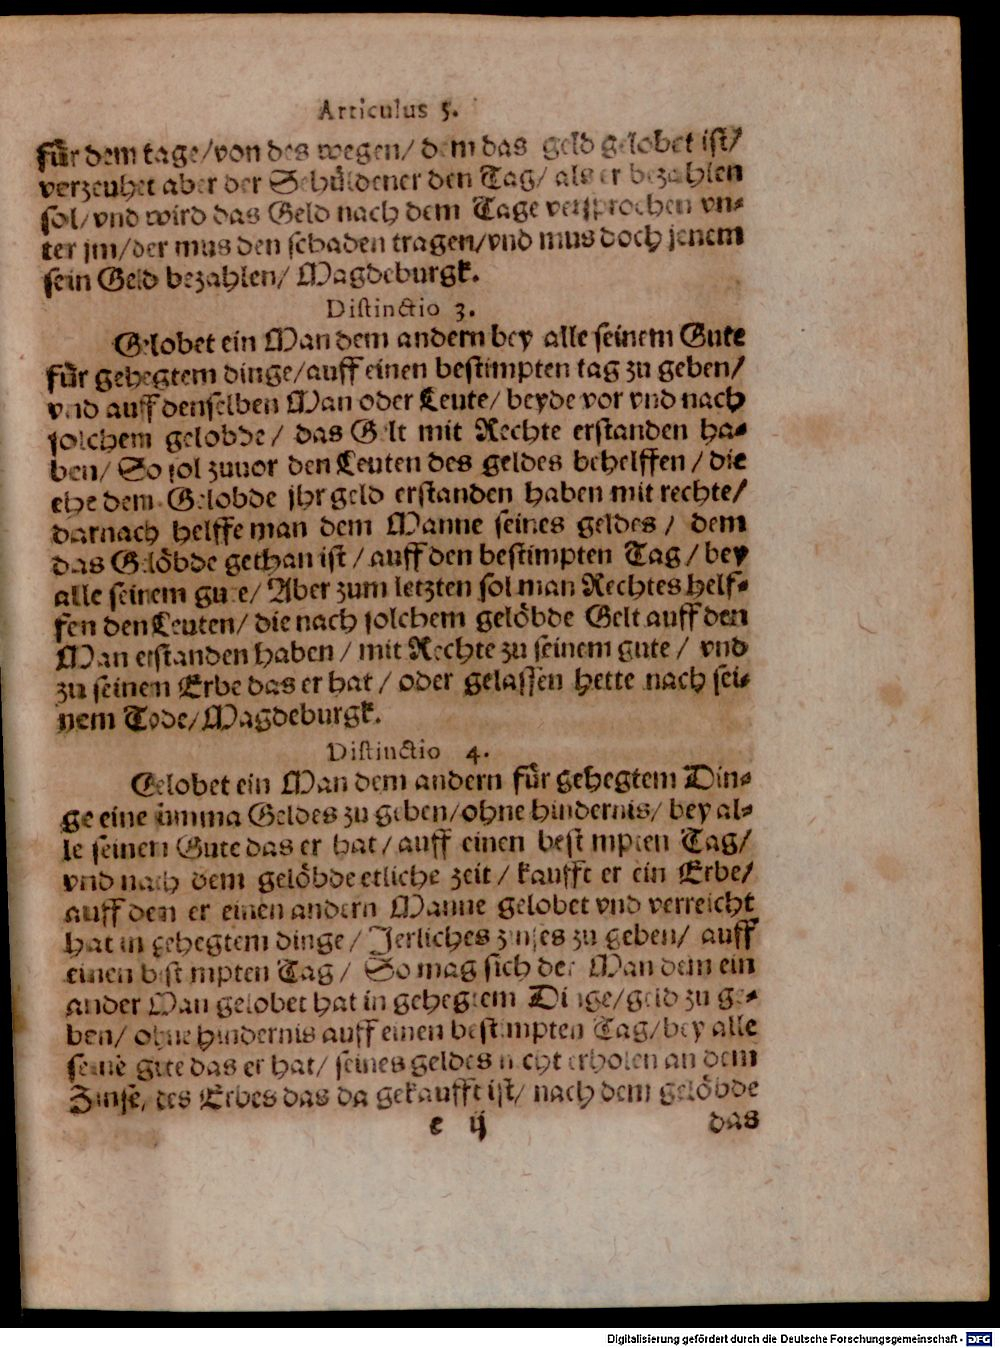 Articulus 5.
für dem tage/von des wegen/ dem das geld gelobet ist/
verzeuhet aber der Schüldener den Tag/ als er bezahlen
sol/vnd wird das Geld nach dem Tage versprochen vn-
ter jm/der mus den schaden tragen/vnd mus doch jenem
sein Geld bezahlen/ Magdeburgk.
Distinctio 3.
Gelobet ein Man dem andern bey alle seinem Gute
für gehegtem dinge/auff einen bestimpten tag zu geben/
vnd auff denselben Man oder Leute/ beyde vor vnd nach
solchem gelobde/ das Gelt mit Rechte erstanden ha-
ben/ So sol zuuor den Leuten des geldes behelffen/ die
ehe dem Gelobde jhr geld erstanden haben mit rechte/
darnach helffe man dem Manne seines geldes/ dem
das Gelöbde gethan ist/auff den bestimpten Tag/bey
alle seinem gute/ Aber zum letzten sol man Rechtes helf-
fen den Leuten/ die nach solchem gelöbde Gelt auff den
Man erstanden haben/ mit Rechte zu seinem gute/ vnd
zu seinen Erbe das er hat/ oder gelassen hette nach sei-
nem Tode/Magdeburgk.
Distinctio 4.
Gelobet ein Man dem andern für gehegtem Din-
ge eine summa Geldes zu geben/ohne hindernis/ bey al-
le seinen Gute das er hat/auff einen bestimpten Tag/
vnd nach dem gelöbde etliche zeit/ kaufft er ein Erbe/
auff den er einen andern Manne gelobet vnd verreicht
hat in gehegtem dinge/ Jerliches zinses zu geben/ auff
einen bestimpten Tag/ So mag sich der Man dem ein
ander Man gelobet hat in gehegtem Dinge/geld zu ge-
ben/ ohne hindernis auff einen bestimpten Tag/bey alle
seinē gute das er hat/ seines geldes nicht erholen an dem
Zinse, des Erbes das da gekaufft ist/ nach dem gelöbde
e ij das
Digitalisierung gefördert durch die Deutsche Forschungsgemeinschaft - DFG